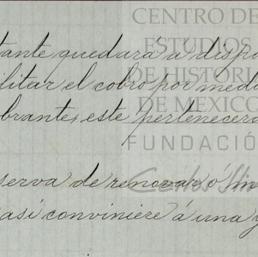 CENTRO DE
ESTUDIOS
DE HISTORI
DE MEXICO
FUNDACIÓ
Carlos Sli
tante quedará á dispo
ilitar el cobro por med
brante, este pertenecer
serva de renovar ó
asi conviniere á una